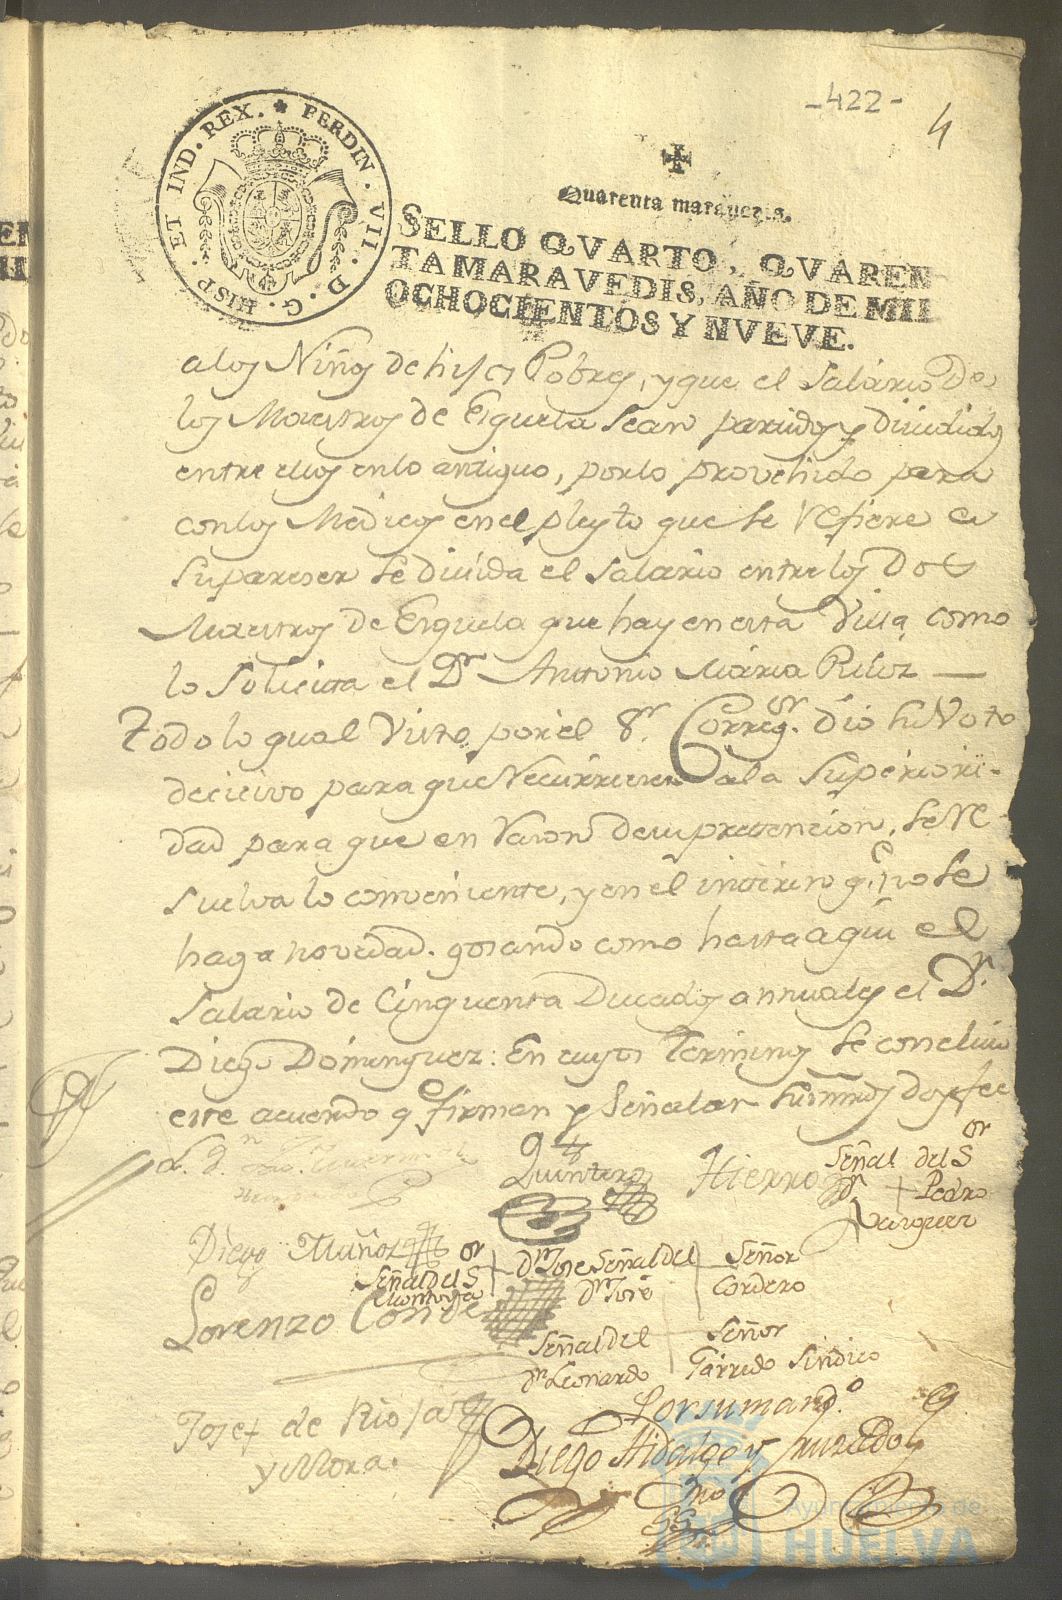 -422-
4
FERDIN. VII. D. G. HISP. ET IND. REX.
Quarenta maravedis.
SELLO QVARTO, QVAREN
TA MARAVEDIS, AÑO DE MIL
OCHOCIENTOS Y NVEVE.
a los Niños de hijos Pobres, y que el Salario De
los Maestros de Esquela sean partidos y Divididos
entre ellos en lo antiguo, por lo provehido para
con los Medicos en el pleyto que se refiere es
su pareser se divida el Salario entre los Dos
Maestros de Esquela que hay en esta Villa como
lo Solicita el Dr Antonio Maria Riloz
Todo lo qual Visto por el Sr. Corregor. dio su Voto
decicivo para que Recurriesen a la Superiori-
dad para que en Vason de su pretencion, se Re-
suelva lo conveniente, y en el interin qe. no se
haga novedad. gosando como hasta aqui el
Salario de Cinquenta Ducados annuales el Dr.
Diego Dominguez: En cuyos Terminos se concluio
este acuerdo qe firman y Señalan sus mrds doy fee
Quintero
Hierro
Señal del Sor
Dn + Pedro
Vasquez
Diego Muñoz
Señal del Sor
Montoya
+
Dn Jose
Señal del
Dn Jose
Señor
Cordero
Lorenzo Conde
Señal del
Dn Leonardo
Señor
Garrido Sindico
Josef de Rioja
y Mora.
Por su mando.
Diego Hidalgo y Jurado
Ayuntamiento de
HUELVA